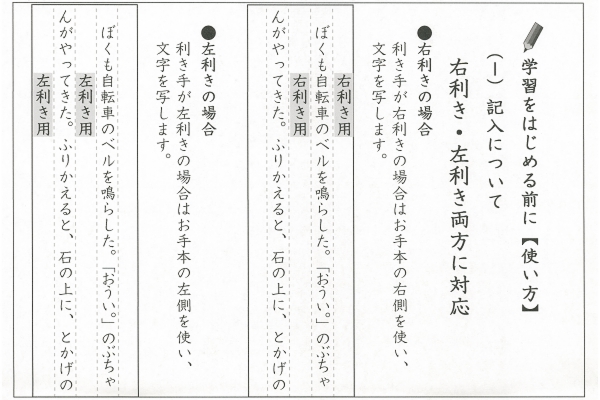 学習をはじめる前に【使い方】
(一) 記入について
右利き・左利き両方に対応
●右利きの場合
利き手が右利きの場合はお手本の右側を使い、
文字を写します。
右利き用
ぼくも自転車のベルを鳴らした。「おうい。」のぶちゃ
右利き用
んがやってきた。ふりかえると、石の上に、とかげの
●左利きの場合
利き手が左利きの場合はお手本の左側を使い、
文字を写します。
ぼくも自転車のベルを鳴らした。「おうい。」のぶちゃ
左利き用
んがやってきた。ふりかえると、石の上に、とかげの
左利き用